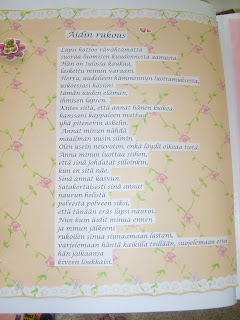 Äidin rukous
Lapsi katsoo räväyttämättä
suoraa luomisen kuudennesta aamusta.
Hän on tulossa kaukaa,
laskettu minun varaani.
Herra, uudelleen hämmennyn luottamuksesta,
uskoessasi käsiini
tämän uuden elämän,
ihmisen lapsen.
Kiitos siitä, että annat hänen kulkea
kanssani kappaleen matkaa
yhä pitenevin askelin.
Annat minun nähdä
maailman uusin silmin.
Olen usein neuvoton, enkä löydä oikeaa tietä.
Anna minun luottaa siihen,
että sinä johdatat silloinkin,
kun en sitä näe.
Sinä annat kasvun.
Satakertaisesti sinä annat
naurun helistä
polvesta polveen siksi,
että tänään eräs lapsi nauroi.
Niin kuin äidit minua ennen
ja minun jälkeeni
rukoilen sinua siunaamaan lastani,
varjelemaan häntä kaikilla teillään, suojelemaan ettei
hän jalkaansa
kiveen loukkaisi.